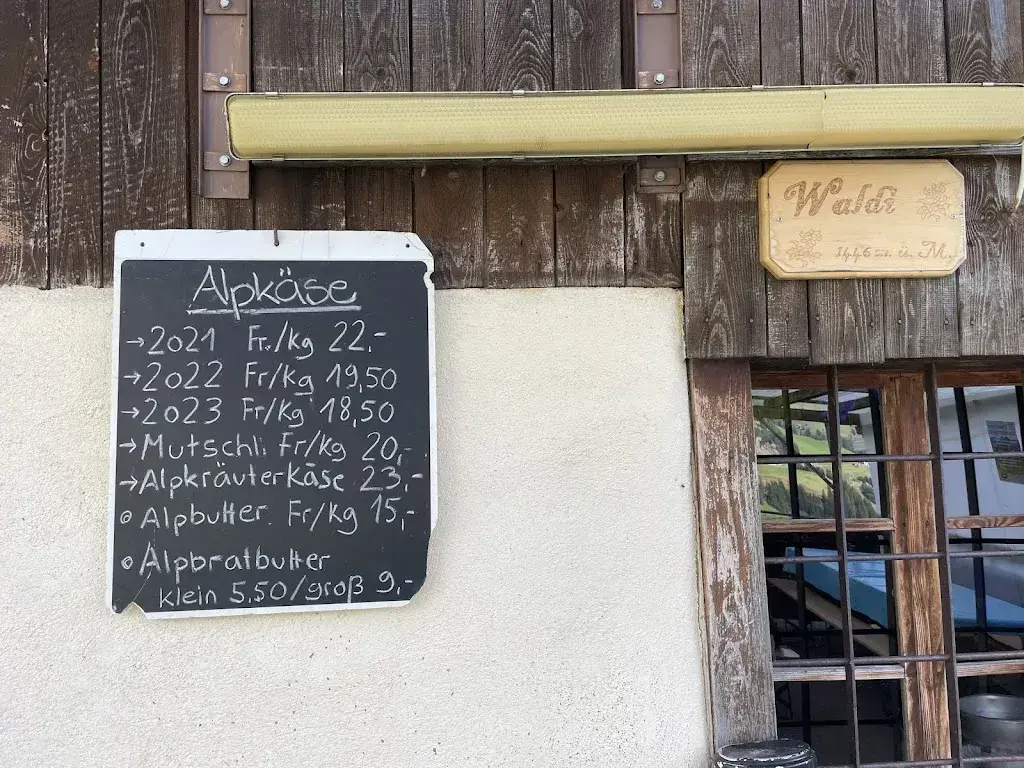 Alpkäse
→2021 Fr./kg 22.-
→2022 Fr/Kg 19,50
→2023 Fr/Kg 18,50
→Mutschli Fr/Kg 20,-
→Alpkräuterkäse 23,-
Alpbutter. Fr/Kg 15,-
Alpbratbutter
klein 5.50/groß 9,-
Waldi
1446 m. ü. M.